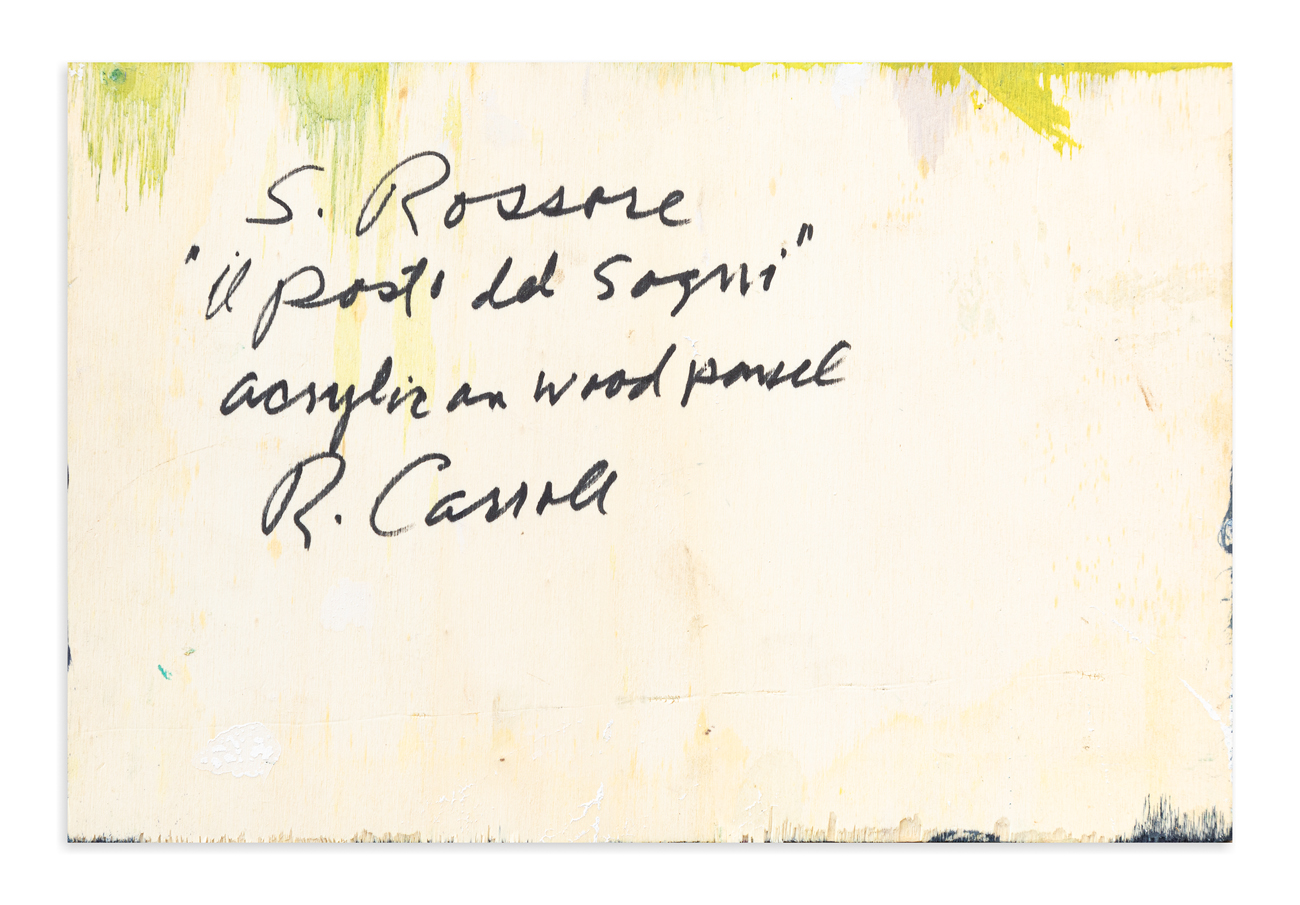 S. Rossore
"il posto del Sogni"
acrylic on wood panel
R. Carroll